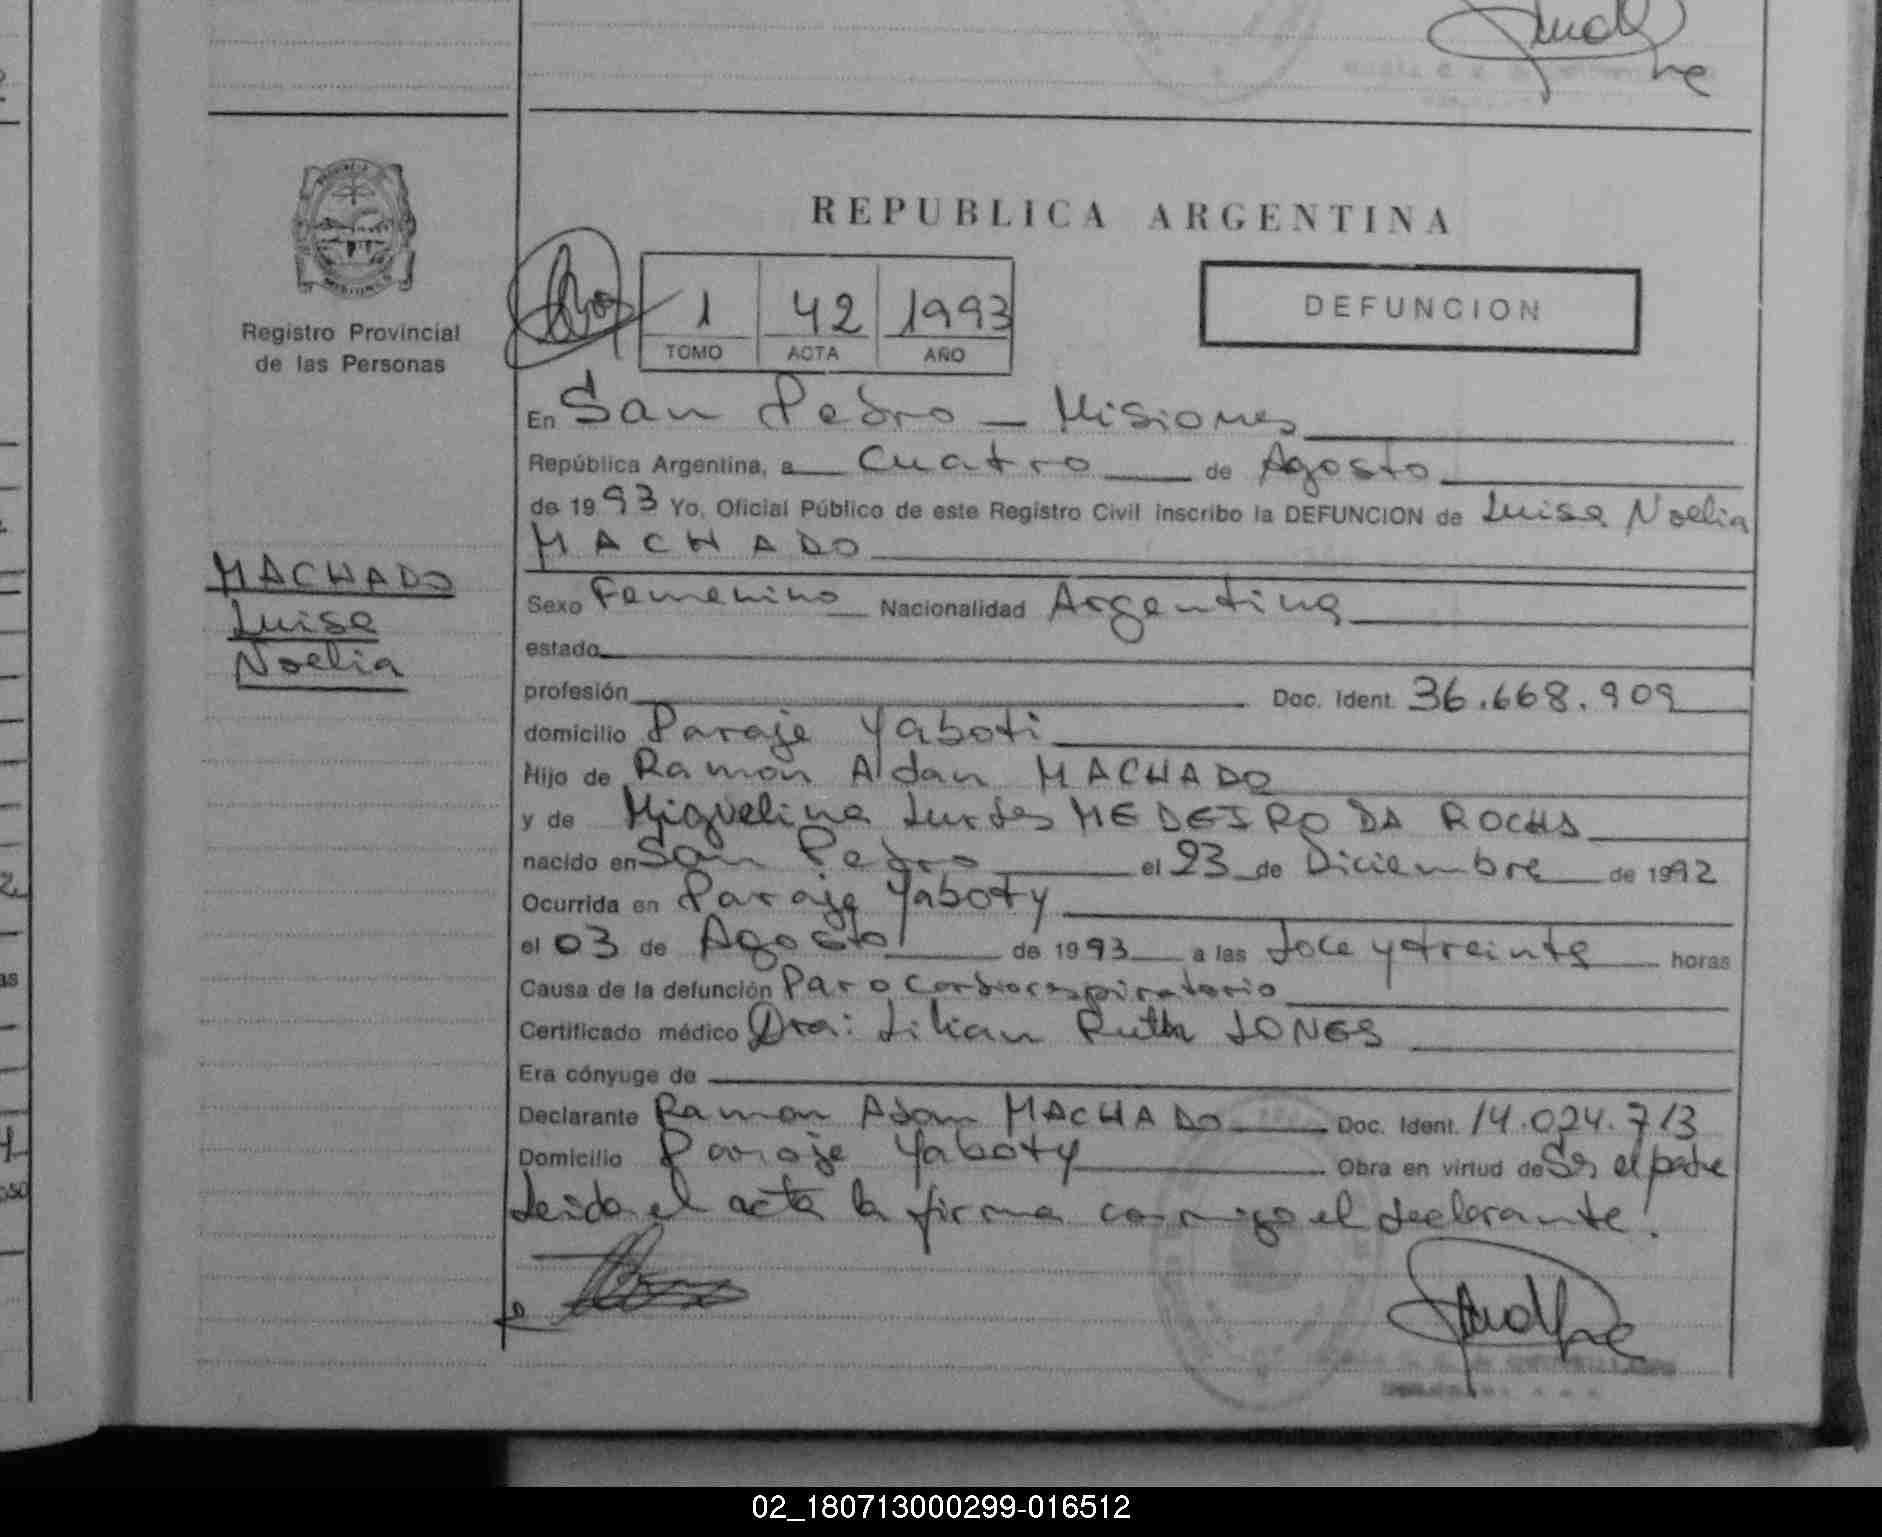 REPUBLICA ARGENTINA
Registro Provincial
de las Personas
1 42 1993
TOMO ACTA AÑO
DEFUNCION
En San Pedro - Misiones
República Argentina, a cuatro de Agosto
de 1993 Yo, Oficial Público de este Registro Civil inscribo la DEFUNCION de Luisa Noelia
MACHADO
MACHADO
Luisa
Noelia
Sexo Femenino Nacionalidad Argentina
estado
profesión Doc. Ident. 36.668.909
domicilio Paraje Yaboti
Hijo de Ramon Adan MACHADO
y de Miguelina Lurdes MEDEIRO DA ROCHA
nacido en San Pedro el 23 de Diciembre de 1992
Ocurrida en Paraje Yaboty
el 03 de Agosto de 1993 a las doce y treinta horas
Causa de la defunción Paro Cardiorespiratorio
Certificado médico Dra: Lilian Ruth JONES
Era cónyuge de
Declarante Ramon Adan MACHADO Doc. Ident. 14.024.713
Domicilio Paraje Yaboty Obra en virtud de Ser el padre
Leida el acta la firma conmigo el declarante!
02_180713000299-016512